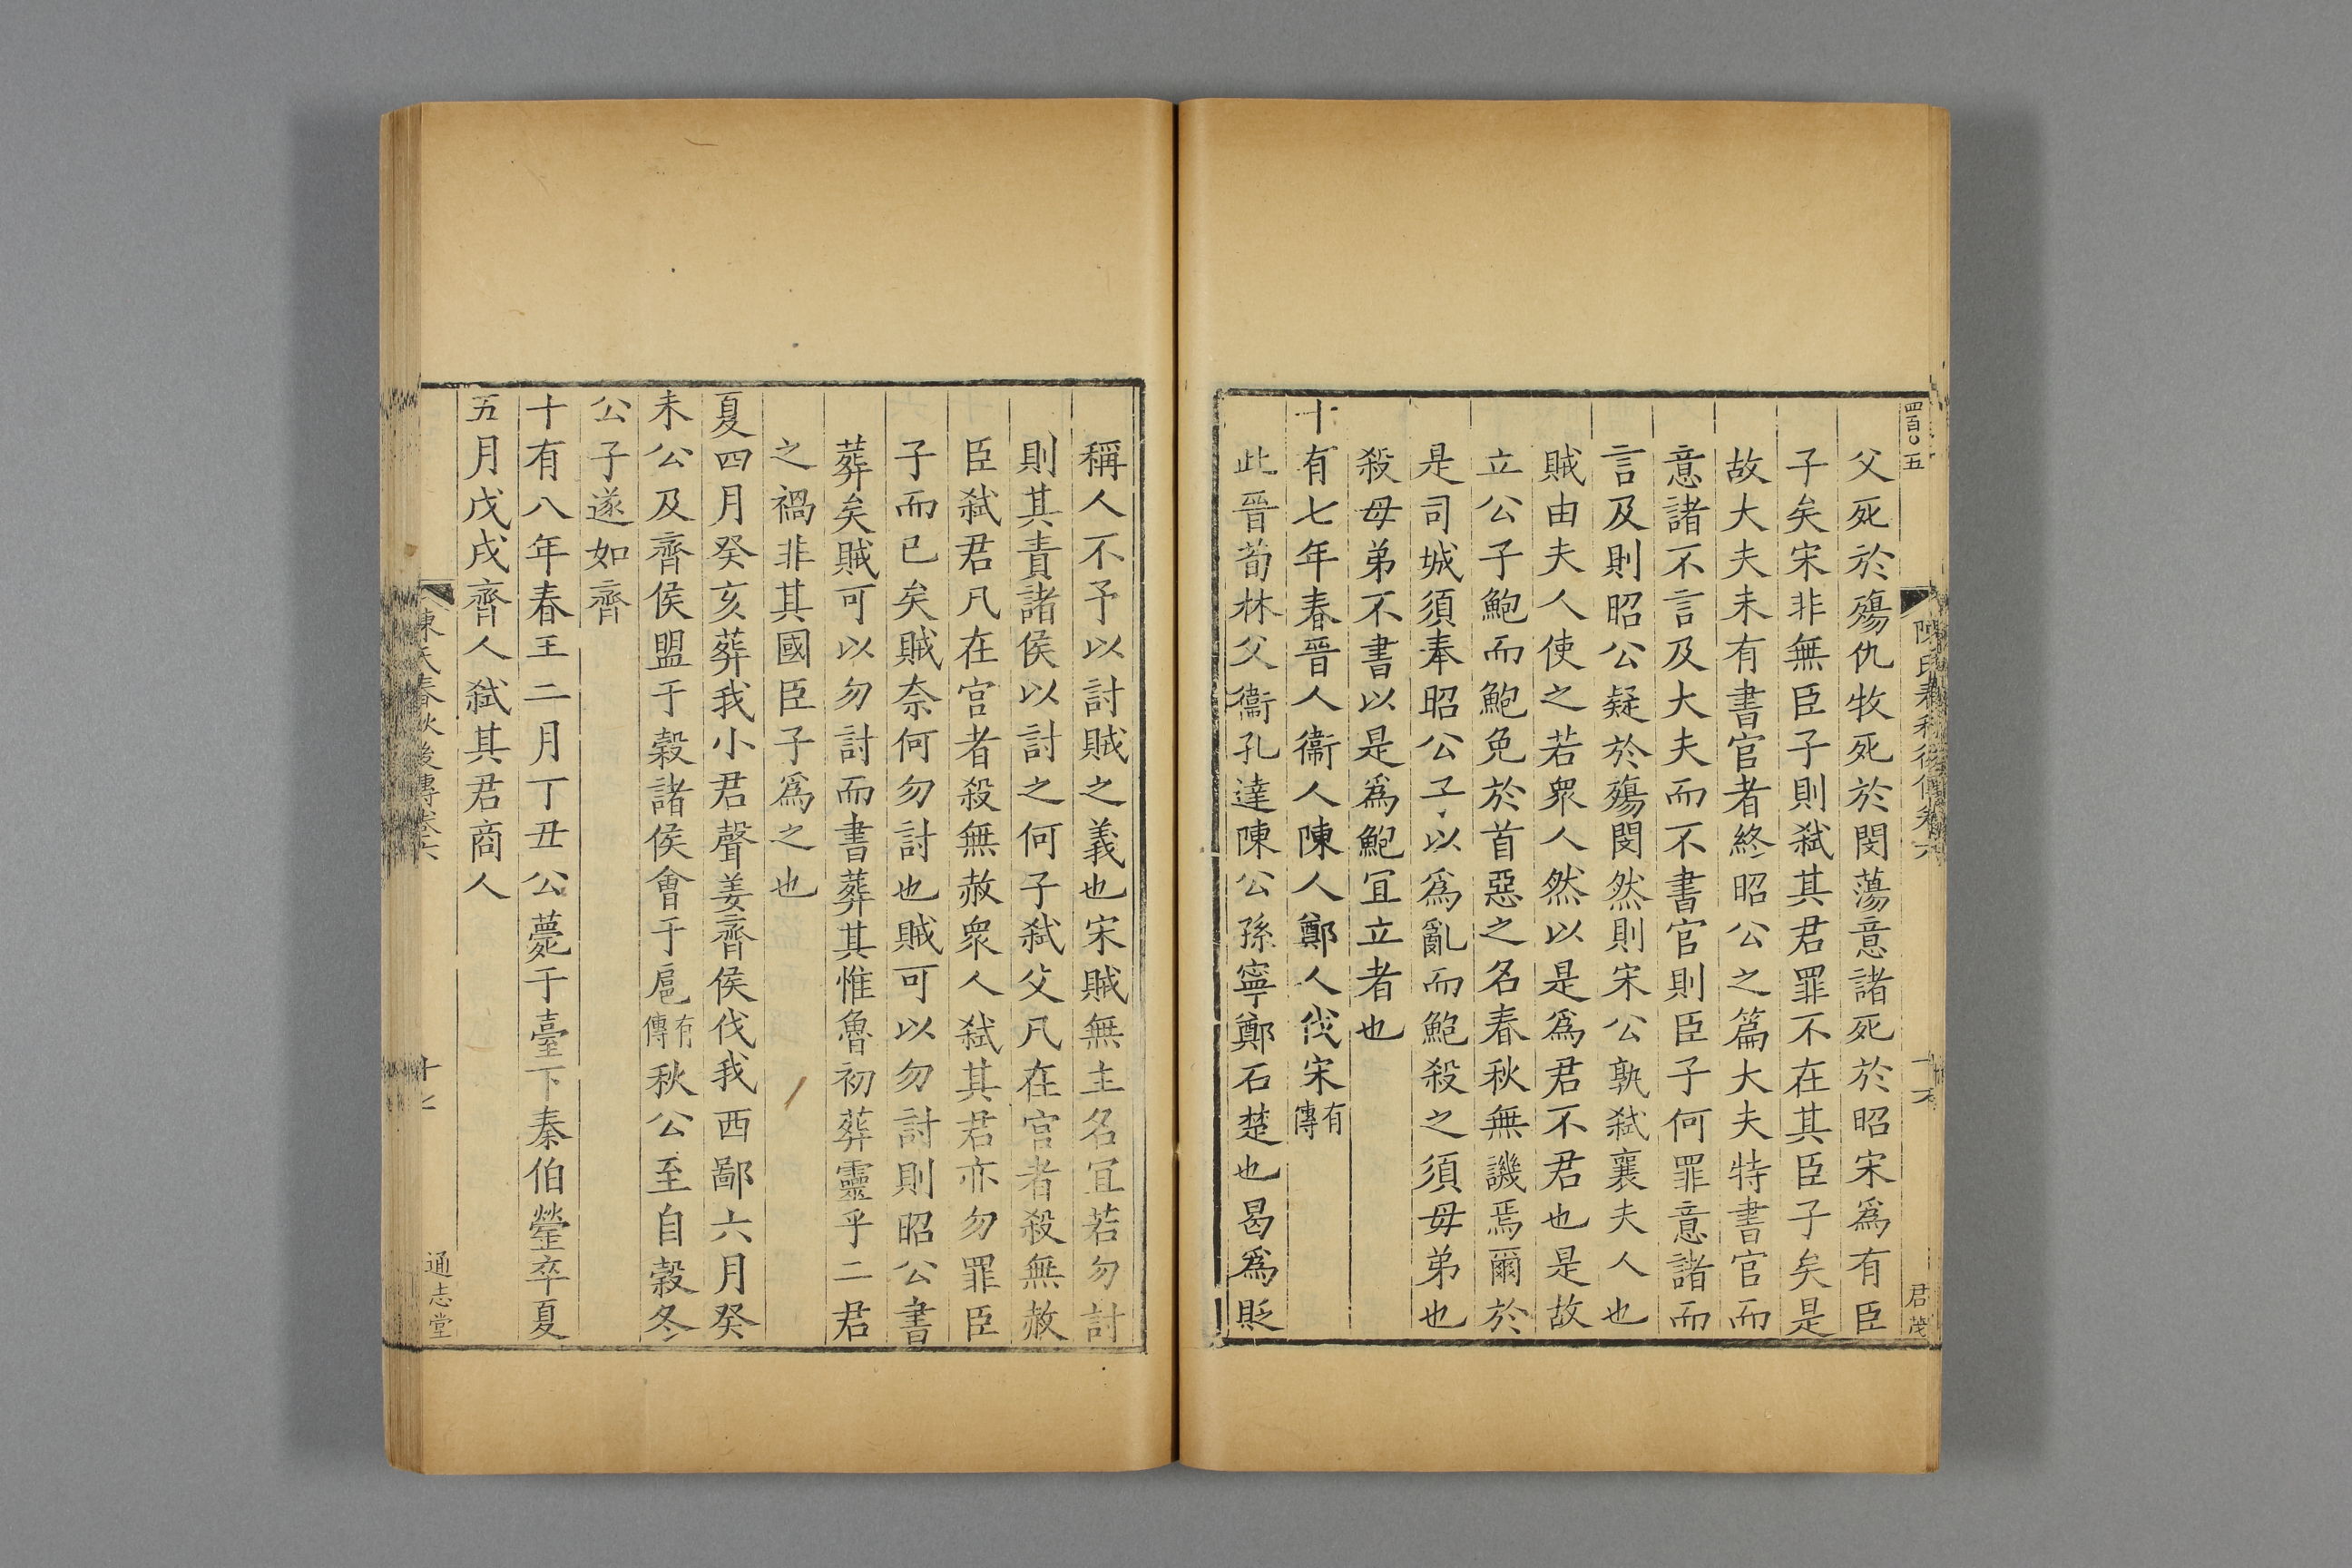 四百〇五
陳氏春秋後傳卷六
十六
君茂
父死於殤仇牧死於閔蕩意諸死於昭宋爲有臣
子矣宋非無臣子則弒其君罪不在其臣子矣是
故大夫未有書官者終昭公之篇大夫特書官而
意諸不言及大夫而不書官則臣子何罪意諸而
言及則昭公疑於殤閔然則宋公孰弒襄夫人也
賊由夫人使之若衆人然以是爲君不君也是故
立公子鮑而鮑免於首惡之名春秋無譏焉爾於
是司城須奉昭公子以爲亂而鮑殺之須毋弟也
殺毋弟不書以是爲鮑冝立者也
十有七年春晉人衞人陳人鄭人伐宋有傳
此晉荀林父衞孔達陳公孫寧鄭石楚也曷爲貶
稱人不予以討賊之義也宋賊無主名冝若勿討
則其責諸侯以討之何子弒父凡在宫者殺無赦
臣弒君凡在官者殺無赦衆人弒其君亦勿罪臣
子而已矣賊奈何勿討也賊可以勿討則昭公書
葬矣賊可以勿討而書葬其惟魯初葬靈乎二君
之禍非其國臣子爲之也
夏四月癸亥葬我小君聲姜齊侯伐我西鄙六月癸
未公及齊侯盟于榖諸侯會于扈有傳秋公至自榖冬
公子遂如齊
十有八年春王二月丁丑公薨于臺下秦伯罃卒夏
五月戊戌齊人弒其君商人
陳氏春秋後傳卷六
十七
通志堂